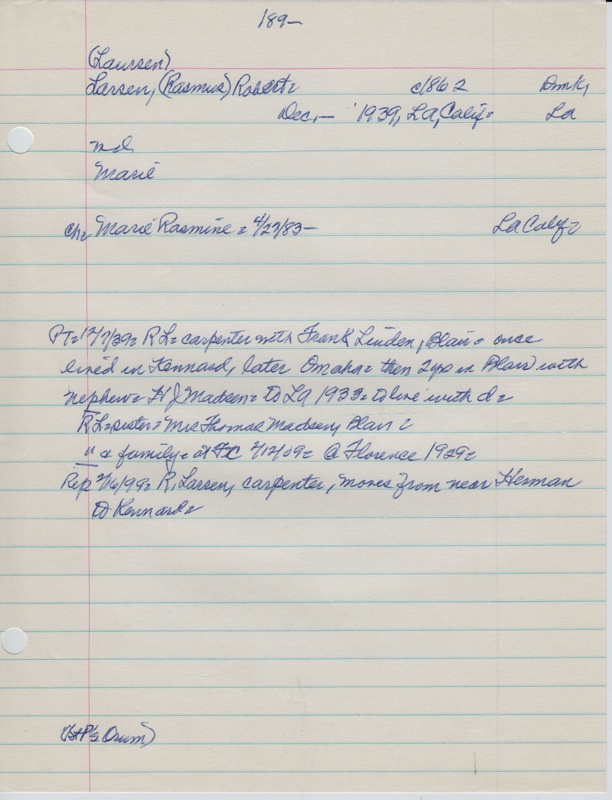 189-
(Laursen)
Larsen, (Rasmus) Robert= c1862 Dmk,
Dec,- '1939, LA, Calif= La
m d,
Marie
ch= Marie Rasmine= 4/27/83- La Calif=
PT= 12/7/39= RL= carpenter with Frank Linden, Blair= once
lived in Kennard, later Omaha= then 2 yrs in Blair with
nephew= H J Madsen= to LA 1933= to live with d=
RL= sister= Mrs Thomas Madsen, Blair=
" a family= at 2/12/09= @ Florence 1929=
Rep R, Larsen, carpenter, moves from near Herman
to Kennard=
Orum)